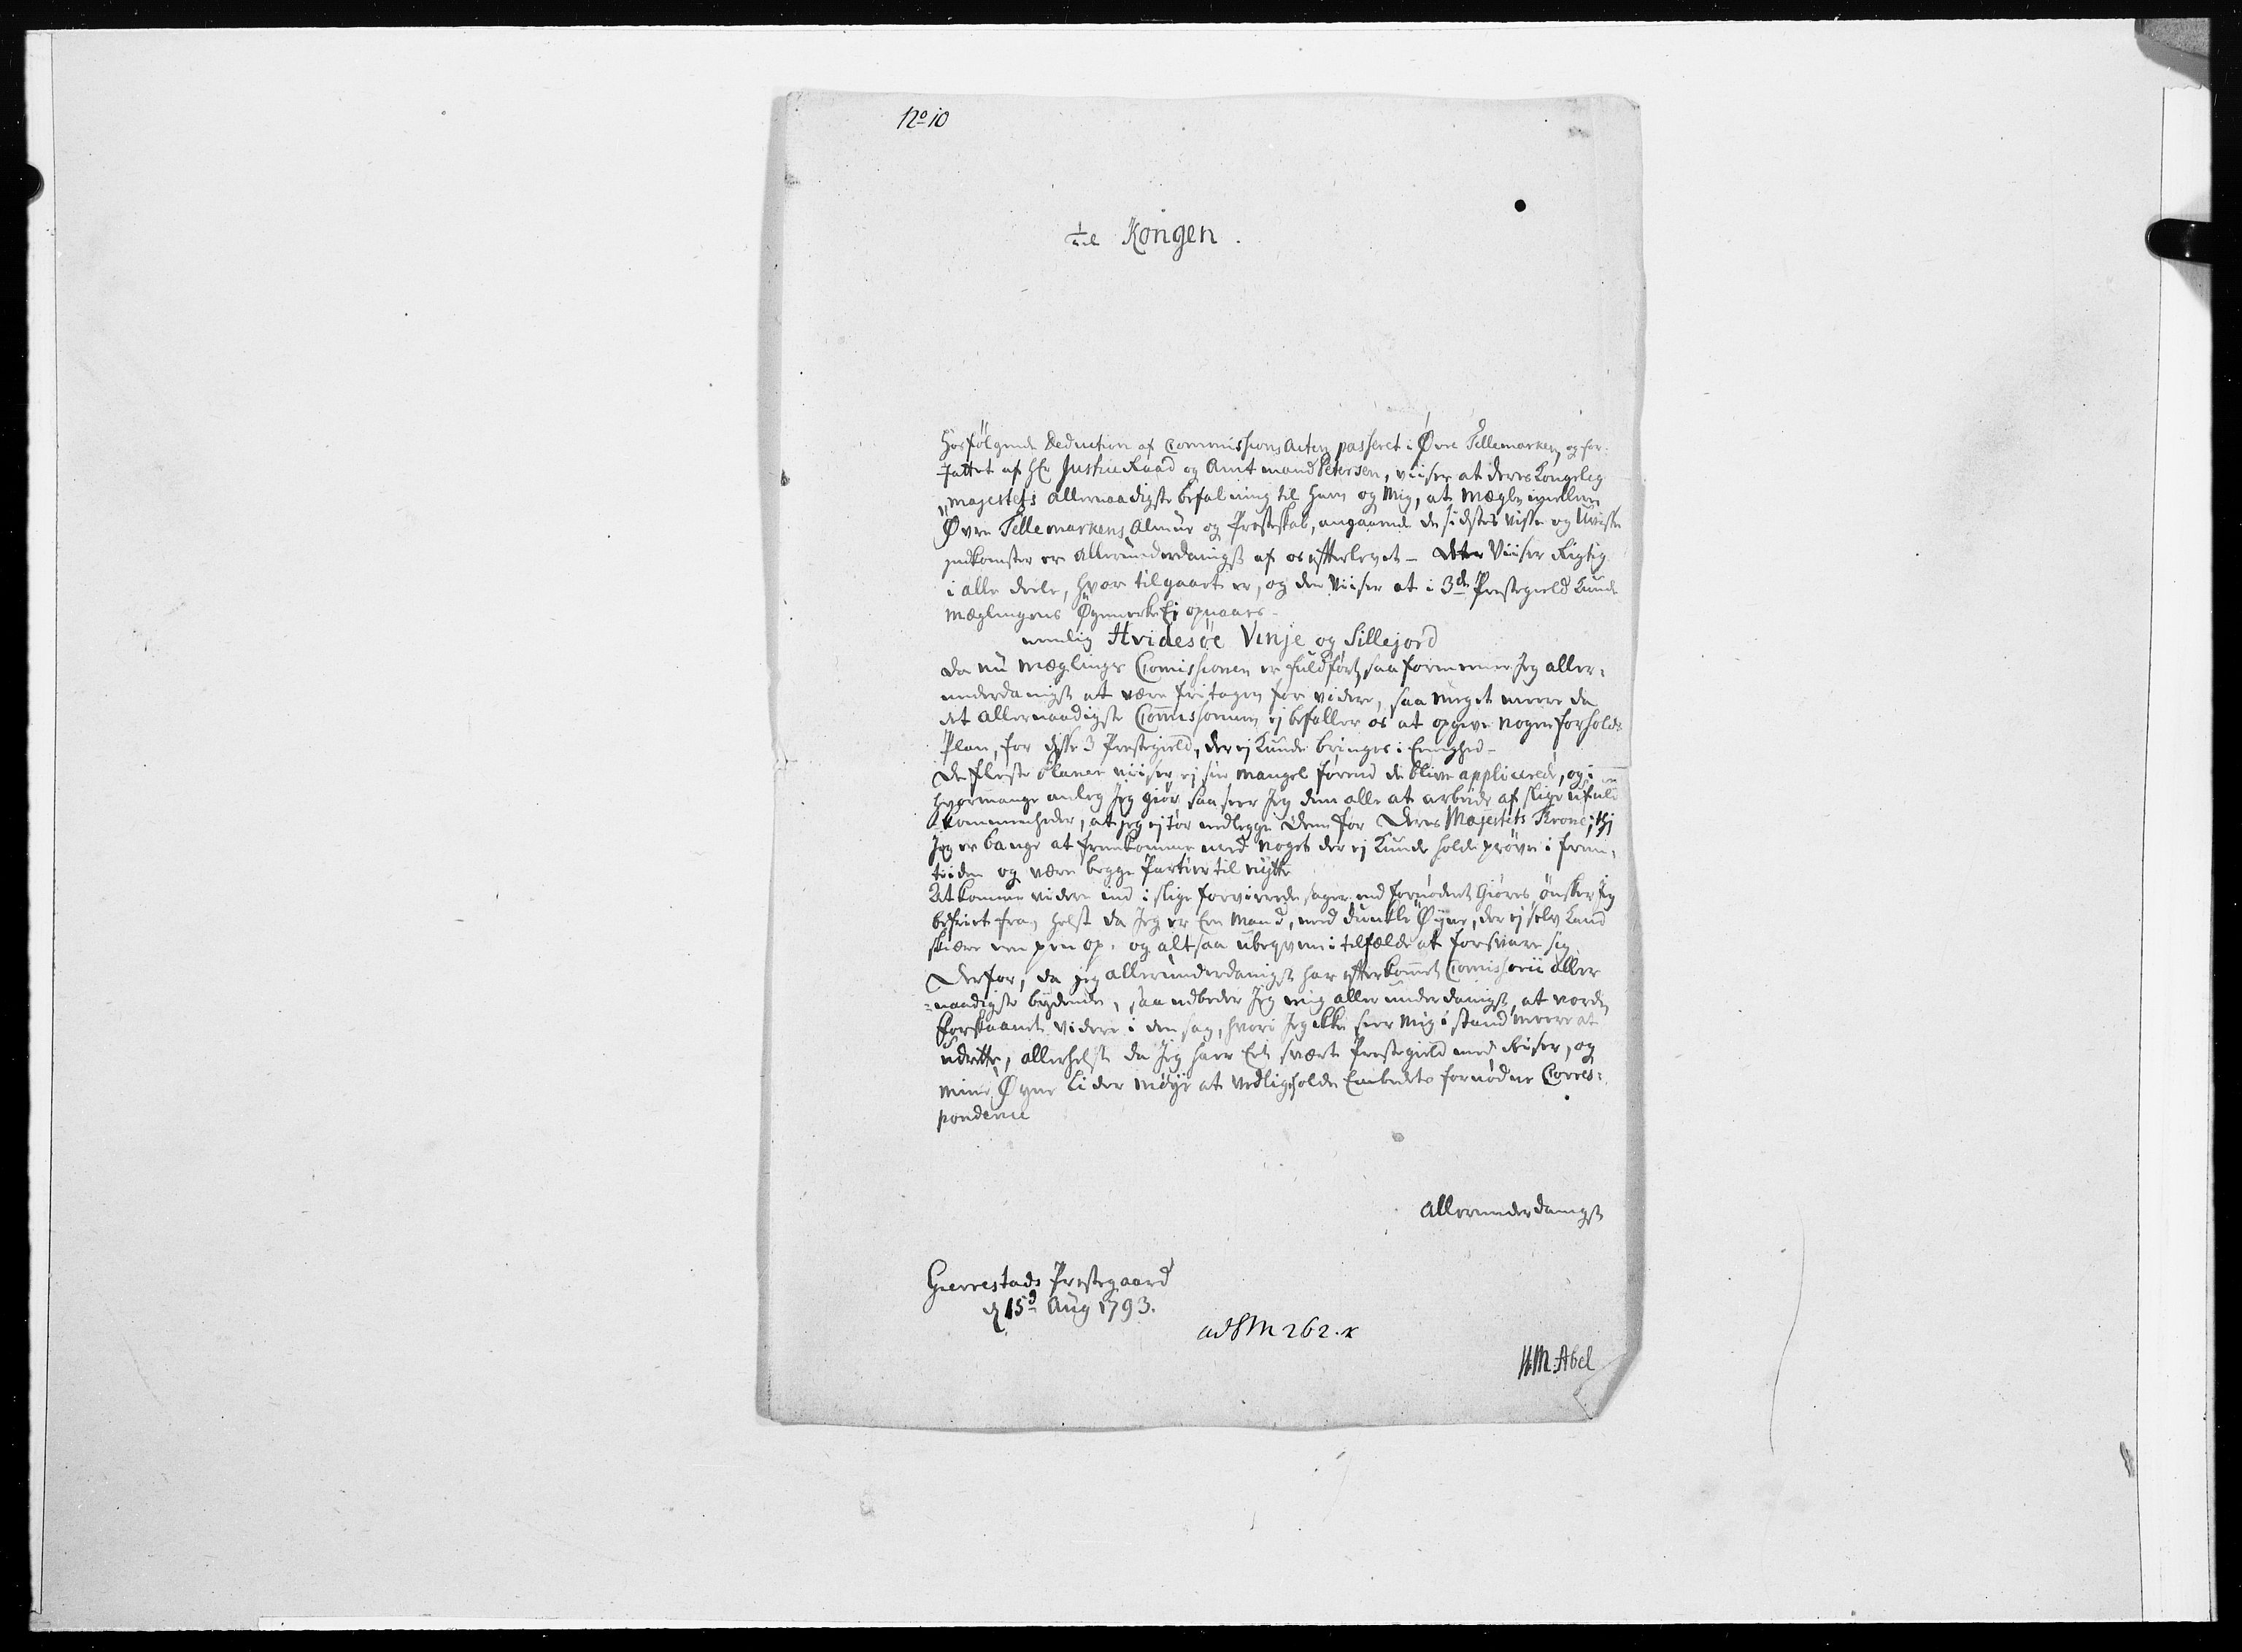 No 10
til Kongen.
Hosfölgende Deduction af Commissions Acten passeret i Øvre Tellemarken, og for-
fattet af Hr Justice Raad og Amtmand Petersen, viiser at deres Kongelig
Majestets allernaadigste befalning til ham og Mig, at Mægle imellem
Øvre Tellemarkens Almue og Presteskab, angaaende de sidstes Visse og Uvisse
indkomster er Allerunderdanigst af os efterlevet - Acten Viiser Rigtig
i alle deele, hvor tilgaaet er, og den Viiser at i 3de Prestegield Kunde
Mæglingens Øyemerke Ej opnaaes -
nemlig Hvidesöe Vinje og Sillejord
Da nu Mæglings Comissionen er fuldført, saa formener Jeg aller-
underdanigst at være fritagen for videre, saa meget meere da
det Allernaadigste Commissorium ej befaller os at opgive nogen forholds
Plan, for disse 3 Prestegield, der ej Kunde bringes i Eenighed -
De fleste planer viiser ej sin Mangel førend de blive applicerede, og i
hvormange anleg Jeg giör saa seer Jeg dem alle at arbeide af slige ufuld
kommenheder, at jeg ej tör nedlegge Dem for Deres Majestets Trone; thj
Jeg er bange at fremkomme med noget der ej Kunde holde pröve i frem-
tiiden og være begge Partier til nytte
At komme videre ind i slige forvirrede sager end fornödent Giöres, önsker Jeg
befriet fra, helst da Jeg er Een Mand, med dunkle Øyne, der ej selv Kand
skiære een pen op, og altsaa ubeqvem i tilfælde at forsvare sig.
Derfor, da jeg allerunderdanigst har efterkommet Comissorii aller
naadigste bydende, saa udbeder Jeg mig allerunderdanigst, at vorde
forskaanet videre i den sag, hvori Jeg ikke seer Mig i stand meere at
udrette, allerhelst da Jeg haver Eet svært Prestegield med Reiser, og
Mine Øyne lider Möye at vedligeholde Embedets fornødne Corres-
pondence
Allerunderdanigst
Gierrestads Prestegaard
d 15d Aug 1793.
ad SM 262.
HM: Abel